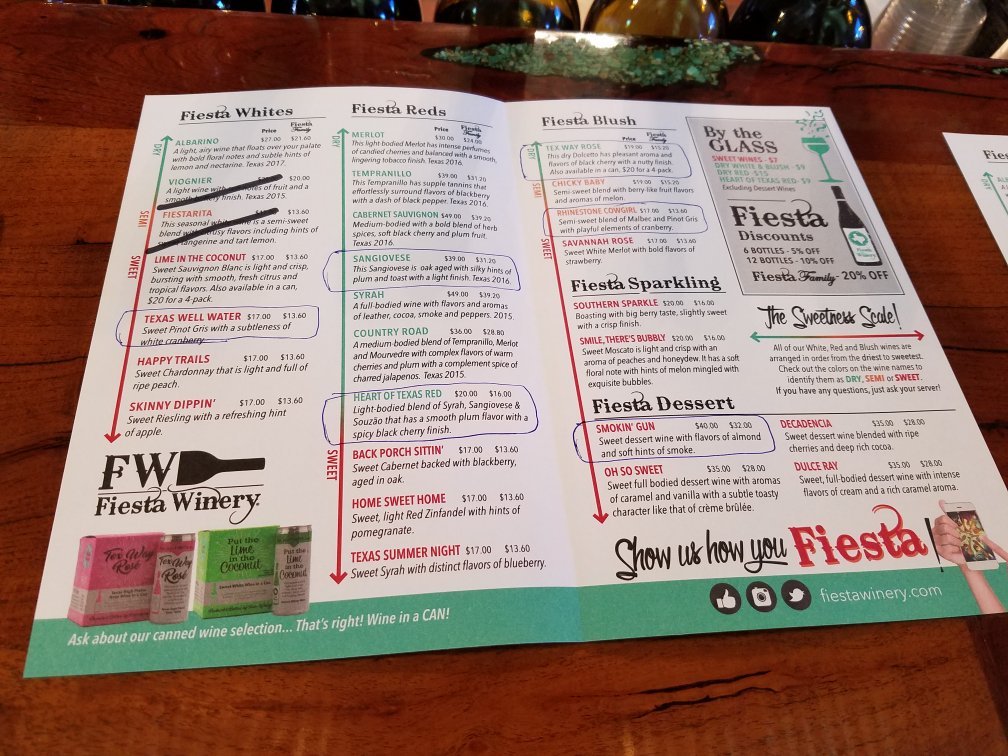 Fiesta Whites
Price Fiesta Family
DRY
ALBARINO $27.00 $21.60
A light, airy wine that floats over your palate
with bold floral notes and subtle hints of
lemon and nectarine. Texas 2017.
VIOGNIER $20.00
A light wine with notes of fruit and a
smooth finish. Texas 2015.
SEMI
FIESTARITA $13.60
This seasonal white wine is a semi-sweet
blend with hints of
tangerine and tart lemon.
SWEET
LIME IN THE COCONUT $17.00 $13.60
Sweet Sauvignon Blanc is light and crisp,
bursting with smooth, fresh citrus and
tropical flavors. Also available in a can,
$20 for a 4-pack.
TEXAS WELL WATER $17.00 $13.60
Sweet Pinot Gris with a subtleness of
white cranberry.
HAPPY TRAILS $17.00 $13.60
Sweet Chardonnay that is light and full of
ripe peach.
SKINNY DIPPIN' $17.00 $13.60
Sweet Riesling with a refreshing hint
of apple.
FW
Fiesta Winery
Tex Way
Rosé
Tex Way
Rosé
Put the
Lime
in the
Coconut
Put the
Lime
in the
Coconut
Ask about our canned wine selection... That's right! Wine in a CAN!
Fiesta Reds
Price Fiesta Family
DRY
MERLOT $30.00 $24.00
This light-bodied Merlot has intense perfumes
of candied cherries and balanced with a smooth,
lingering tobacco finish. Texas 2016.
TEMPRANILLO $39.00 $31.20
This Tempranillo has supple tannins that
effortlessly surround flavors of blackberry
with a dash of black pepper. Texas 2016.
CABERNET SAUVIGNON $49.00 $39.20
Medium-bodied with a bold blend of herb
spices, soft black cherry and plum fruit.
Texas 2016.
SANGIOVESE $39.00 $31.20
This Sangiovese is oak aged with silky hints of
plum and toast with a light finish. Texas 2016.
SYRAH $49.00 $39.20
A full-bodied wine with flavors and aromas
of leather, cocoa, smoke and peppers. 2015.
COUNTRY ROAD $36.00 $28.80
A medium-bodied blend of Tempranillo, Merlot
and Mourvedre with complex flavors of warm
cherries and plum with a complement spice of
charred jalapenos. Texas 2015.
HEART OF TEXAS RED $20.00 $16.00
Light-bodied blend of Syrah, Sangiovese &
Souzão that has a smooth plum flavor with a
spicy black cherry finish.
SWEET
BACK PORCH SITTIN' $17.00 $13.60
Sweet Cabernet backed with blackberry,
aged in oak.
HOME SWEET HOME $17.00 $13.60
Sweet, light Red Zinfandel with hints of
pomegranate.
TEXAS SUMMER NIGHT $17.00 $13.60
Sweet Syrah with distinct flavors of blueberry.
Fiesta Blush
Price Fiesta Family
DRY
TEX WAY ROSE $19.00 $15.20
This dry Dolcetto has pleasant aroma and
flavors of black cherry with a nutty finish.
Also available in a can, $20 for a 4-pack.
SEMI
CHICKY BABY $19.00 $15.20
Semi-sweet blend with berry-like fruit flavors
and aromas of melon.
RHINESTONE COWGIRL $17.00 $13.60
Semi-sweet blend of Malbec and Pinot Gris
with playful elements of cranberry.
SWEET
SAVANNAH ROSE $17.00 $13.60
Sweet White Merlot with bold flavors of
strawberry.
Fiesta Sparkling
SOUTHERN SPARKLE $20.00 $16.00
Boasting with big berry taste, slightly sweet
with a crisp finish.
SMILE, THERE'S BUBBLY $20.00 $16.00
Sweet Moscato is light and crisp with an
aroma of peaches and honeydew. It has a soft
floral note with hints of melon mingled with
exquisite bubbles.
Fiesta Dessert
SMOKIN' GUN $40.00 $32.00
Sweet dessert wine with flavors of almond
and soft hints of smoke.
OH SO SWEET $35.00 $28.00
Sweet full bodied dessert wine with aromas
of caramel and vanilla with a subtle toasty
character like that of crème brûlée.
DECADENCIA $35.00 $28.00
Sweet dessert wine blended with ripe
cherries and deep rich cocoa.
DULCE RAY $35.00 $28.00
Sweet, full-bodied dessert wine with intense
flavors of cream and a rich caramel aroma.
By the
GLASS
SWEET WINES - $7
DRY WHITE & BLUSH - $9
DRY RED - $15
HEART OF TEXAS RED - $9
Excluding Dessert Wines
Fiesta
Discounts
6 BOTTLES - 5% OFF
12 BOTTLES - 10% OFF
Fiesta Family - 20% OFF
The Sweetness Scale!
All of our White, Red and Blush wines are
arranged in order from the driest to sweetest.
Check out the colors on the wine names to
identify them as DRY, SEMI or SWEET.
If you have any questions, just ask your server!
Show us how you Fiesta!
fiestawinery.com
Fies
DRY